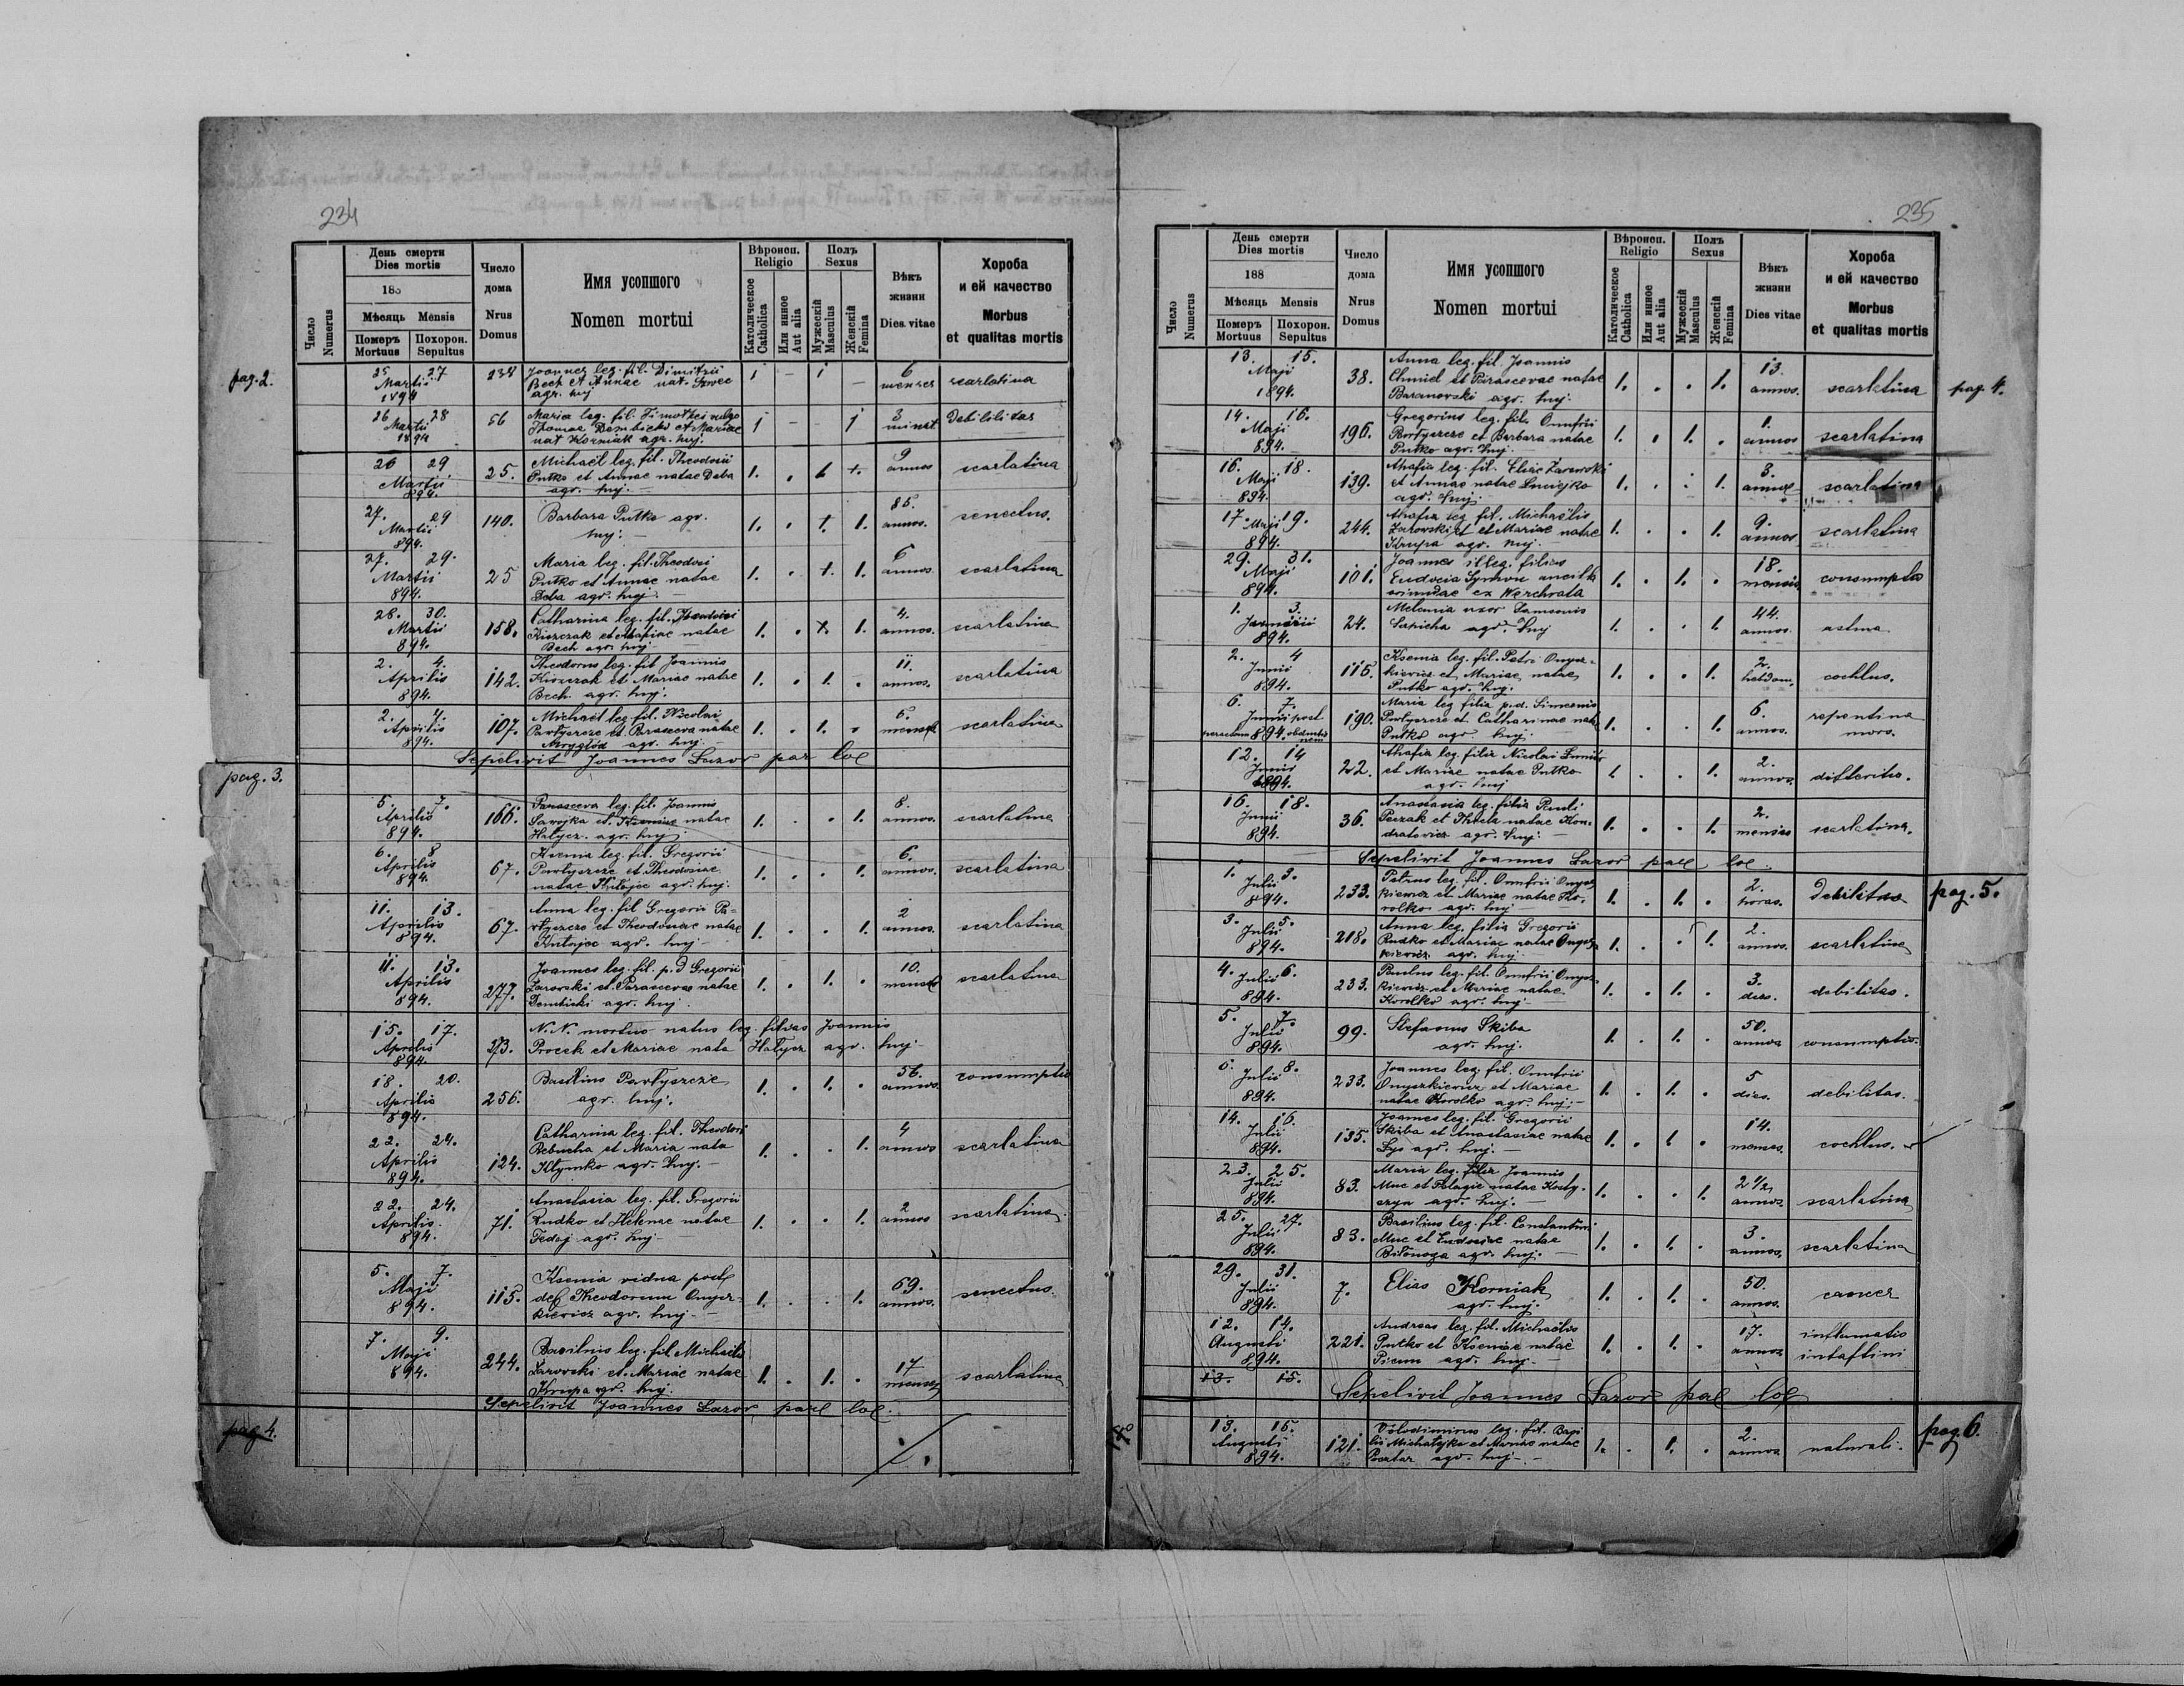 234
День смерти
Dies mortis
188
Мѣсяць Mensis
Число
Numerus
Померъ
Mortuus
Похорон.
Sepultus
Число
дома
Nrus
Domus
Имя усопшого
Nomen mortui
Вѣроисп.
Religio
Католическое
Catholica
Или инное
Aut alia
Полъ
Sexus
Мужескій
Masculus
Женскій
Femina
Вѣкъ
жизни
Dies vitae
Хороба
и ей качество
Morbus
et qualitas mortis
pag. 2.
25 27 Martii 1894
234
Joannes leg. fil. Dimitrii
Bech et Annae nat. Szwec
agr. huj
1 – 1 –
6 menses
scarlatina
26 28 Martii 1894
56
Maria leg. fil. Timothei vulgo
Thomae Dembicki et Mariae
nat Korniak agr. huj.
1 – – 1
3
Debilitas
26 29 Martii 894.
25.
Michaël leg. fil. Theodosii
Putko et Annae natae Deba
agr. huj.
1. .
9 annos
scarlatina
27. 29 Martii 894.
140.
Barbara Putko agr.
huj.
1. . 1.
85. annos.
senectus.
27. 29. Martii 894.
25
Maria leg. fil. Theodosi
Putko et Annae natae
Deba agr. huj.
1. . 1.
6 annos.
scarlatina
28. 30. Martii 894.
158.
Catharina leg. fil. Theodosi
Kiszczak et Ahafiae natae
Bech agr. huj.
1. . 1.
4. annos.
scarlatina
2. 4. Aprilis 894.
142.
Theodorus leg. fil Joannis
Kiszczak et Mariae natae
Bech agr. huj.
1. . 1. .
11. annos.
scarlatina
2. 4. Aprilis 894.
107.
Michaël leg. fil. Nicolai
Pawłyszcze et Parasceva natae
Mrygłód agr. huj.
1. . 1. .
6. menses
scarlatina
Sepelivit Joannes Lazor par loc
pag. 3.
5. 7. Aprilis 894.
166.
Parasceva leg. fil. Joannis
Savojka et Kseniae natae
Hałycz. agr. huj.
1. . . 1.
8. annos.
scarlatina
6. 8 Aprilis 894.
67.
Ksenia leg. fil. Gregorii
Pawłyszcze et Theodosiae
natae Kułajec agr. huj.
1. . . 1.
6. annos.
scarlatina
11. 13. Aprilis 894.
67.
Anna leg. fil Gregorii Pa-
włyszcze et Theodosiae natae
Kułajec agr. huj.
1. . . 1.
2 annos.
scarlatina
11. 13. Aprilis 894.
277.
Joannes leg. fil. p.d Gregorii
Zarowski et Parascevae natae
Dembicki agr. huj
1. . 1. .
10. menses
scarlatina
15. 17. Aprilis 894.
273.
N. N. mortuo natus leg. filius Joannis
Procek et Mariae nata Hałycz agr. huj.
18. 20. Aprilis 894.
256.
Basilius Pawłyszcze
agr. huj.
1. . 1. .
56. annos.
consumptio
22. 24. Aprilis 894.
124.
Catharina leg. fil. Theodori
Rebucha et Maria nata
Kłymko agr. huj.
1. . . 1.
4 annos
scarlatina
22. 24. Aprilis. 894.
71.
Anastasia leg. fil. Gregorii
Rudko et Helenae natae
Fedaj agr. huj.
1. . . 1.
2 annos
scarlatina
5. 7. Maji 894.
115.
Ksenia vidua post
def Theodorum Onysz-
kiewicz agr. huj.
1. . . 1.
69. annos.
senectus.
7. 9. Maji 894.
244.
Basilius leg. fil Michaëlis
Zarowski et Mariae natae
Krupa agr. huj.
1. . 1. .
17 menses
scarlatina
Sepelivit Joannes Lazor parl loc.
pag 4.
235
День смерти
Dies mortis
188
Мѣсяць Mensis
Число
Numerus
Померъ
Mortuus
Похорон.
Sepultus
Число
дома
Nrus
Domus
Имя усопшого
Nomen mortui
Вѣроисп.
Religio
Католическое
Catholica
Или инное
Aut alia
Полъ
Sexus
Мужескій
Masculus
Женскій
Femina
Вѣкъ
жизни
Dies vitae
Хороба
и ей качество
Morbus
et qualitas mortis
13. 15. Maji 1894.
38.
Anna leg. fil. Joannis
Chmiel et Parascevae natae
Baranowski agr. huj.
1. . . 1.
13. annos.
scarlatina
pag. 4.
14. 16. Maji 894.
196.
Gregorius leg. fil. Onufrii
Pawłyszcze et Barbara natae
Putko agr. huj.
1. . 1. .
1. annos
scarlatina
16. 18. Maji 894.
139.
Ahafia leg. fil. Eliae Zarowski
et Annae natae
agr. huj.
1. . . 1.
8. annos
scarlatina
17 19. Maji 894.
244.
Ahafia leg fil. Michaëlis
Zarowski et Mariae natae
Krupa agr. huj.
1. . . 1.
9. annos
scarlatina
29. 31. Maji 894.
101.
Joannes illeg. filius
Eudocia ancilla
ex Werchrata
1. . 1. .
18. mensis
consumptio
1. 3. 894.
24.
Melania uxor Samsonis
Sapicha agr. huj
1. . . 1
44. annos.
astma
2. 4 Junii 894.
115.
Ksenia leg. fil. Petri Onysz-
kiewicz et Mariae natae
Putko agr. huj.
1. . . 1.
2. hebdom.
cochlus.
6. 7. Junii post 894.
190.
Maria leg filia p.d. Simeonis
Pawłyszcze et Catharinae nat
Putko agr. huj.
1. . . 1.
6. annos.
repentina
mors.
12. 14 Junii 1894.
22.
Ahafia leg. filia Nicolai
et Mariae natae Putko
agr. huj
1. . . 1.
2. annos
difteritis.
16. 18. Junii 894.
36.
Anastasia leg. filia Pauli
Peczak et Thecla natae Kon-
dratowicz agr. huj.
1. . . 1.
2. menses
scarlatina.
Sepelivit Joannes Lazor parl loc
1. 3. Julii 894.
233.
Petrus leg. fil. Onufrii Onysz
kiewicz et Mariae natae Ko-
rolko agr. huj
1. . 1. .
2. horas.
Debilitas
pag. 5.
3. 5. Julii 894.
218.
Anna leg. filia Gregorii
Rudko et Mariae natae Onysz
kiewicz. agr. huj
1. . . 1.
2. annos.
scarlatina
4. 6. Julii 894.
233.
Paulus leg. fil. Onufrii Onysz-
kiewicz et Mariae natae
Korolko agr. huj.
1. . 1. .
3. dies.
debilitas.
5. 7. Julii 894.
99.
Stefanus Skiba
agr. huj.
1. . 1. .
50. annos
consumptio.
6. 8. Julii 894.
233.
Joannes leg. fil. Onufrii
Onyszkiewicz et Mariae
natae Korolko agr. huj.
1. . 1. .
5 dies.
debilitas.
14. 16. Julii 894.
135.
Joannes leg. fil. Gregorii
Skiba et Anastasiae natae
Lys agr. huj.
1. . 1. .
14. menses.
cochlus.
23. 25. Julii 894.
83.
Maria leg. filia Joannis
Muc et Pelagie natae Kosty-
szyn agr. huj.
1. . . 1.
2 1/2 annos
scarlatina
25. 27. Julii 894.
83.
Basilius leg. fil. Constantini
Muc et Eudociae natae
Biłonoga agr. huj.
1. . 1. .
3. annos.
scarlatina
29. 31. Julii 894.
7.
Elias Korniak
agr. huj.
1. . 1. .
50. annos.
cancer
12. 14. Augusti 894.
221.
Andreas leg. fil. Michaëlis
Putko et Kseniae natae
Picum agr. huj.
1. . 1. .
17. annos
inflamatio
intestini
13. 15.
Sepelivit Joannes Lazor parl loc
13. 15. Augusti 894.
121.
Volodimirus leg. fil. Basi
lii Michałejko et Mariae natae
agr. huj.
1. . 1. .
2. annos
naturali.
pag. 6.